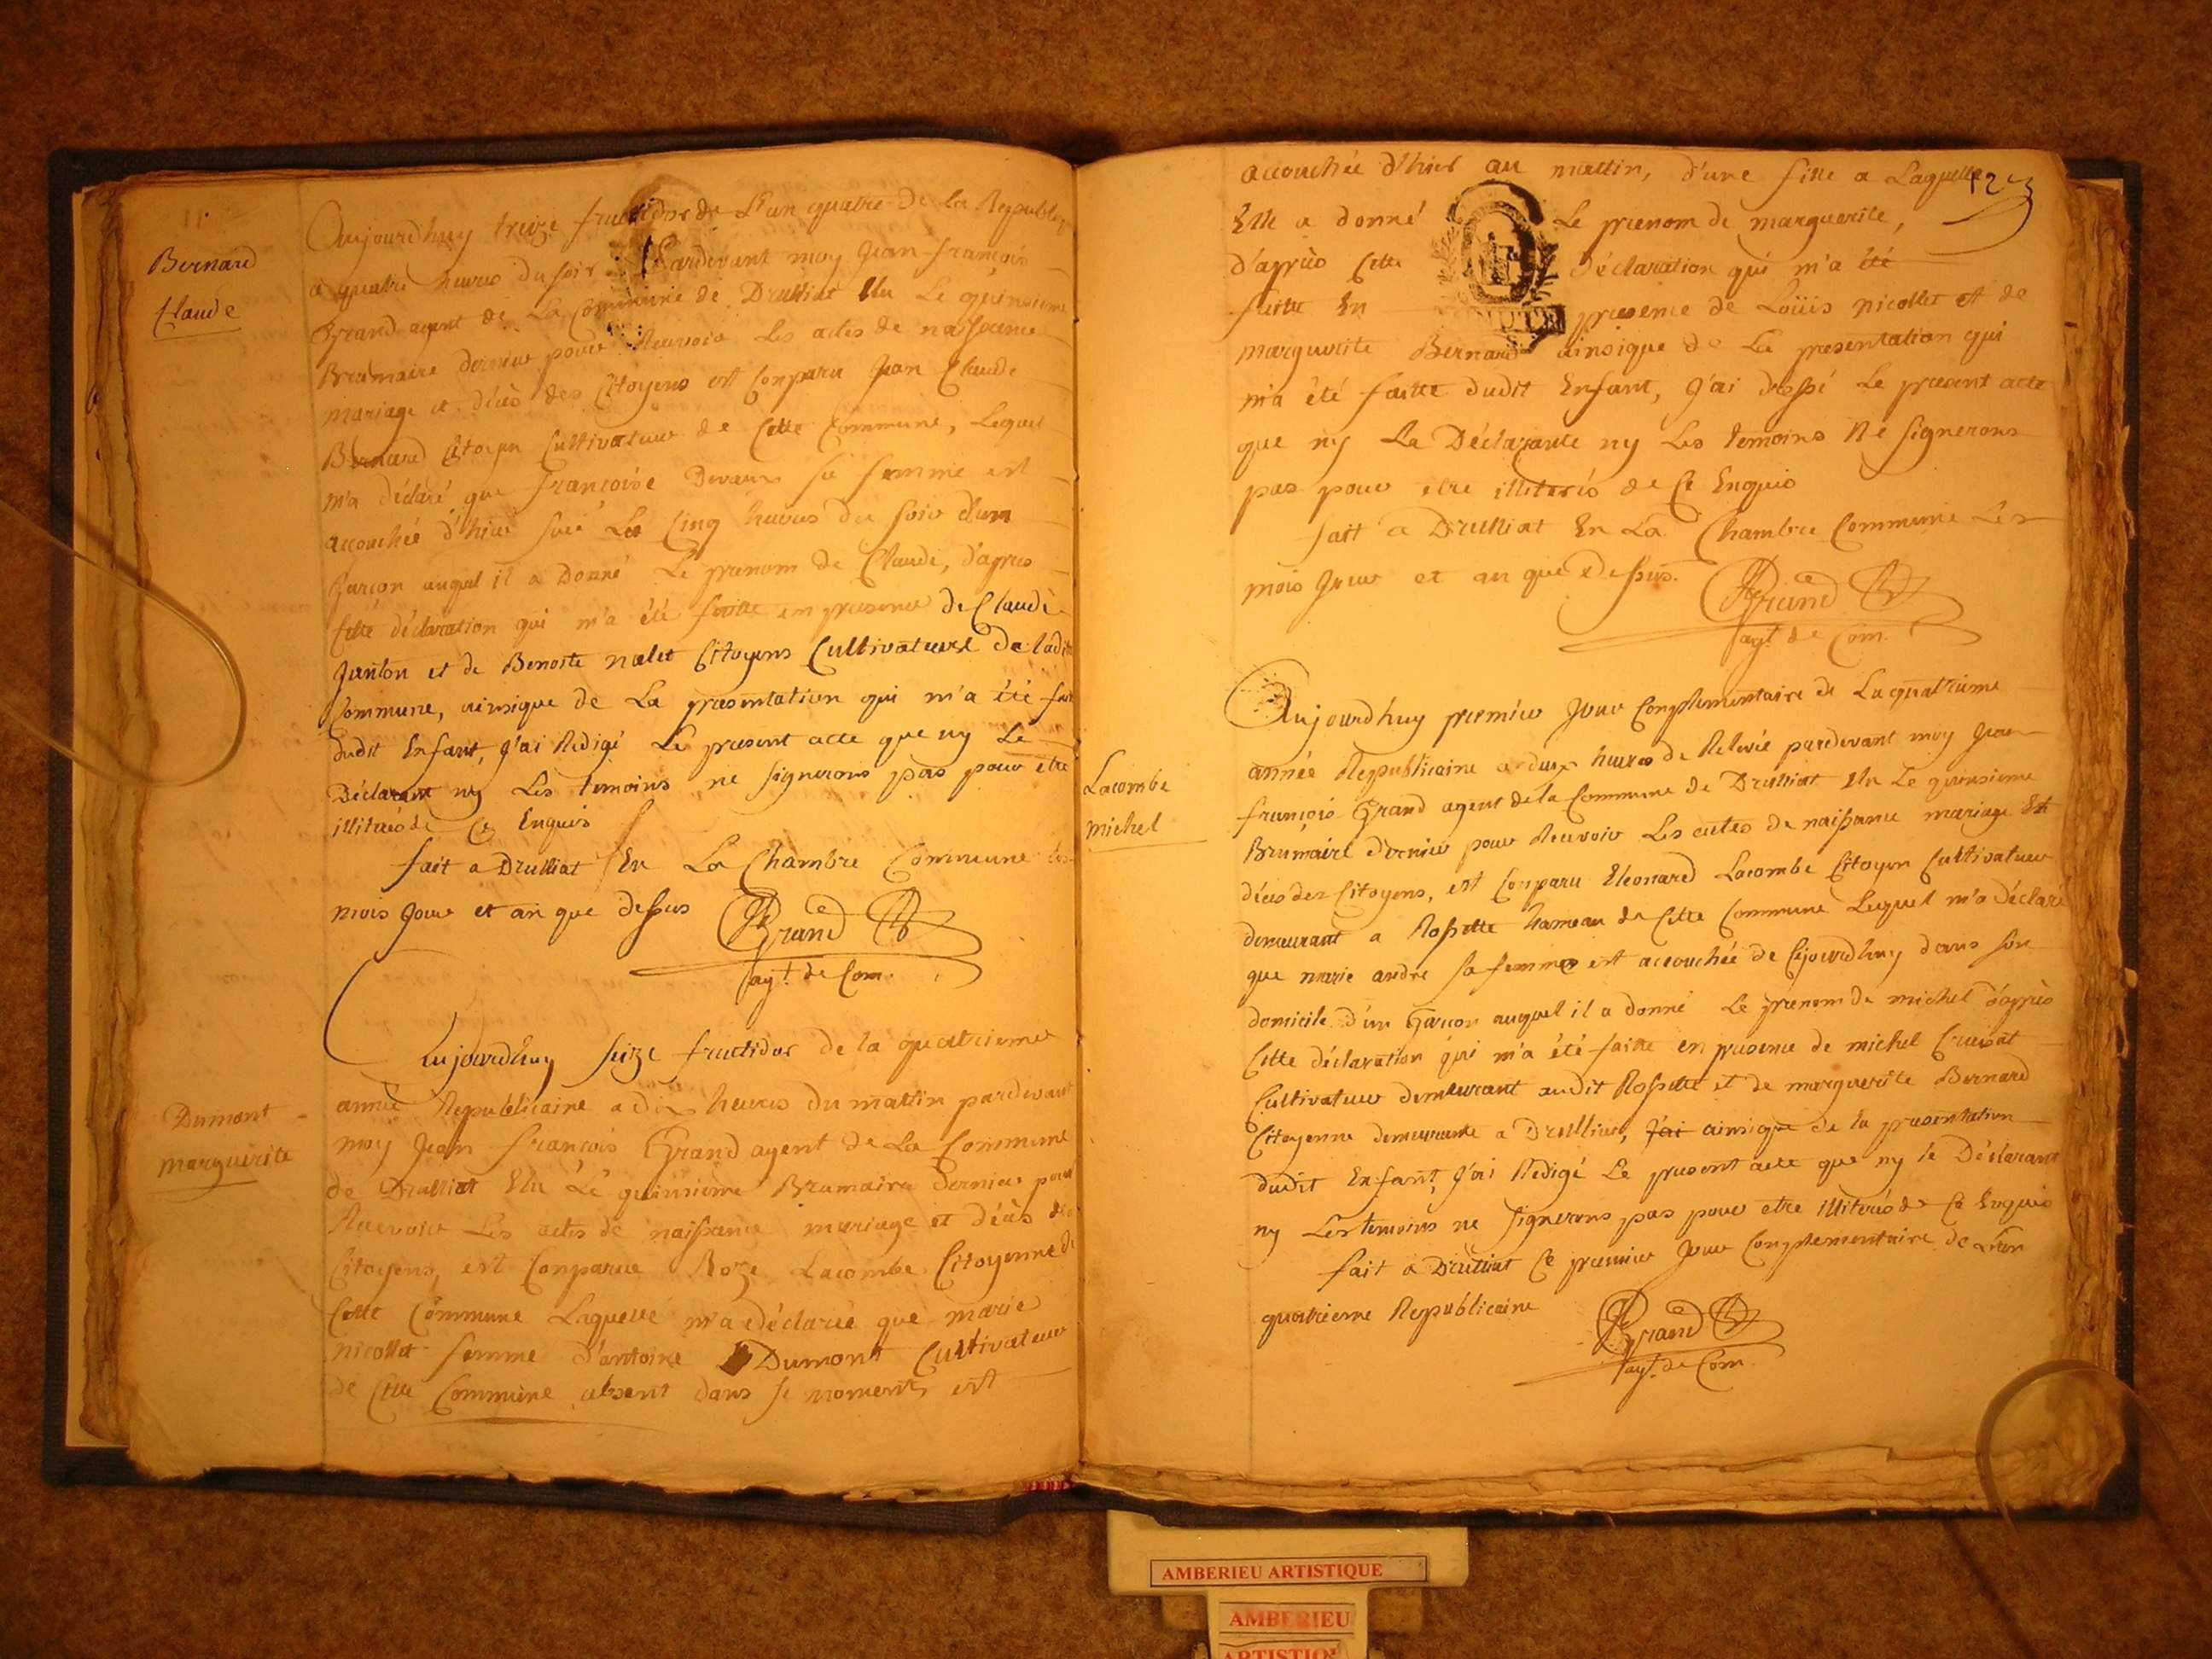 Bernard
Claude
Aujourdhuy treize fructidor de L'an quatre de la Republique
a quatre heures du soir Pardevant moy Jean françois
Grand agent de La Commune de Druilliat Elu Le quinsieme
Brumaire dernier pour Recevoir Les actes de naissance
mariage et décès des Citoyens est Conparu Jean Claude
Bernard Citoyen Cultivateur de Cette Commune, Lequel
m'a déclaré que françoise Devaux sa femme est
accouchée d'hier sur Les Cinq heures du soir d'un
Garcon auquel il a Donné Le prenom de Claude, d'après
Cette déclaration qui m'a été faitte en presence de Claude
Janton et de Benoite nalet Citoyens Cultivateurs de ladite
Commune, ainsique de La presentation qui m'a été fait
dudit Enfant, J'ai Redigé Le present acte que ny Le
Déclarant ny Les temoins ne signerons pas pour etre
illiterés de Ce Enquis
fait a Druilliat En La Chambre Commune Les
mois Jour et an que dessus Grand
agt. de Com.
Dumont
marguerite
Aujourdhuy seize fructidor de la quatrieme
année Republicaine a dix heures du mattin pardevant
moy Jean françois Grand agent de La Commune
de Druilliat Elu Le quinsieme Brumaire dernier pour
Recevoir Les actes de naissance mariage et décès des
Citoyens, est Conparue Roze Lacombe Citoyenne de
Cette Commune Laquelle m'a déclarée que marie
nicollet femme d'antoine Dumont Cultivateur
de Cette Commune absent dans se moment, est
123
accouchée d'hier au mattin, d'une fille a Laquelle
Elle a donné Le prenom de marguerite,
d'après Cette déclaration qui m'a été
faitte En presence de Loüis nicollet et de
marguerite Bernard ainsique de La presentation qui
m'a été faitte dudit Enfant, J'ai dressé Le present acte
que ny La Déclarante ny Les temoins Ne signerons
pas pour etre illiterés de Ce Enquis
fait a Druilliat En La Chambre Commune Les
mois Jour et an que dessus. Grand
agt. de Com.
Lacombe
michel
Aujourdhuy premier Jour Complementaire de La quatrieme
année Republicaine a deux heures de Relevée pardevant moy Jean
françois Grand agent de la Commune de Druilliat Elu Le quinsieme
Brumaire dernier pour Recevoir Les actes de naissance mariage Et
décès des Citoyens, est Conparu Eleonard Lacombe Citoyen Cultivateur
demeurant a Rossette hameau de Cette Commune Lequel m'a déclaré
que marie andré sa femme est accouchée de Cejourdhuy dans son
domicile d'un Garcon auquel il a donné Le prenom de michel d'après
Cette déclaration qui m'a été faitte en presence de michel Cruisat
Cultivateur demeurant audit Rossette et de marguerite Bernard
Citoyenne demeurante a Druilliat, J'ai ainsique de la presentation
dudit Enfant, J'ai Redigé Le present acte que ny le Déclarant
ny Les temoins ne signerons pas pour etre illiterés de Ce Enquis
fait a Druilliat Ce premier Jour Complementaire de L'an
quatrieme Republicaine Grand
agt. de Com.
AMBERIEU ARTISTIQUE
AMBERIEU
ARTISTIQU